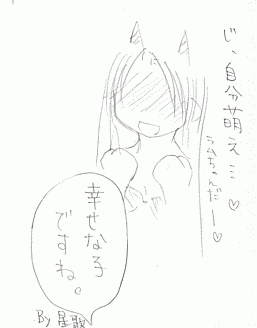 じ、自分萌え… ♡
ラムちゃんだー♡
幸せな子
ですね。
By 星歌